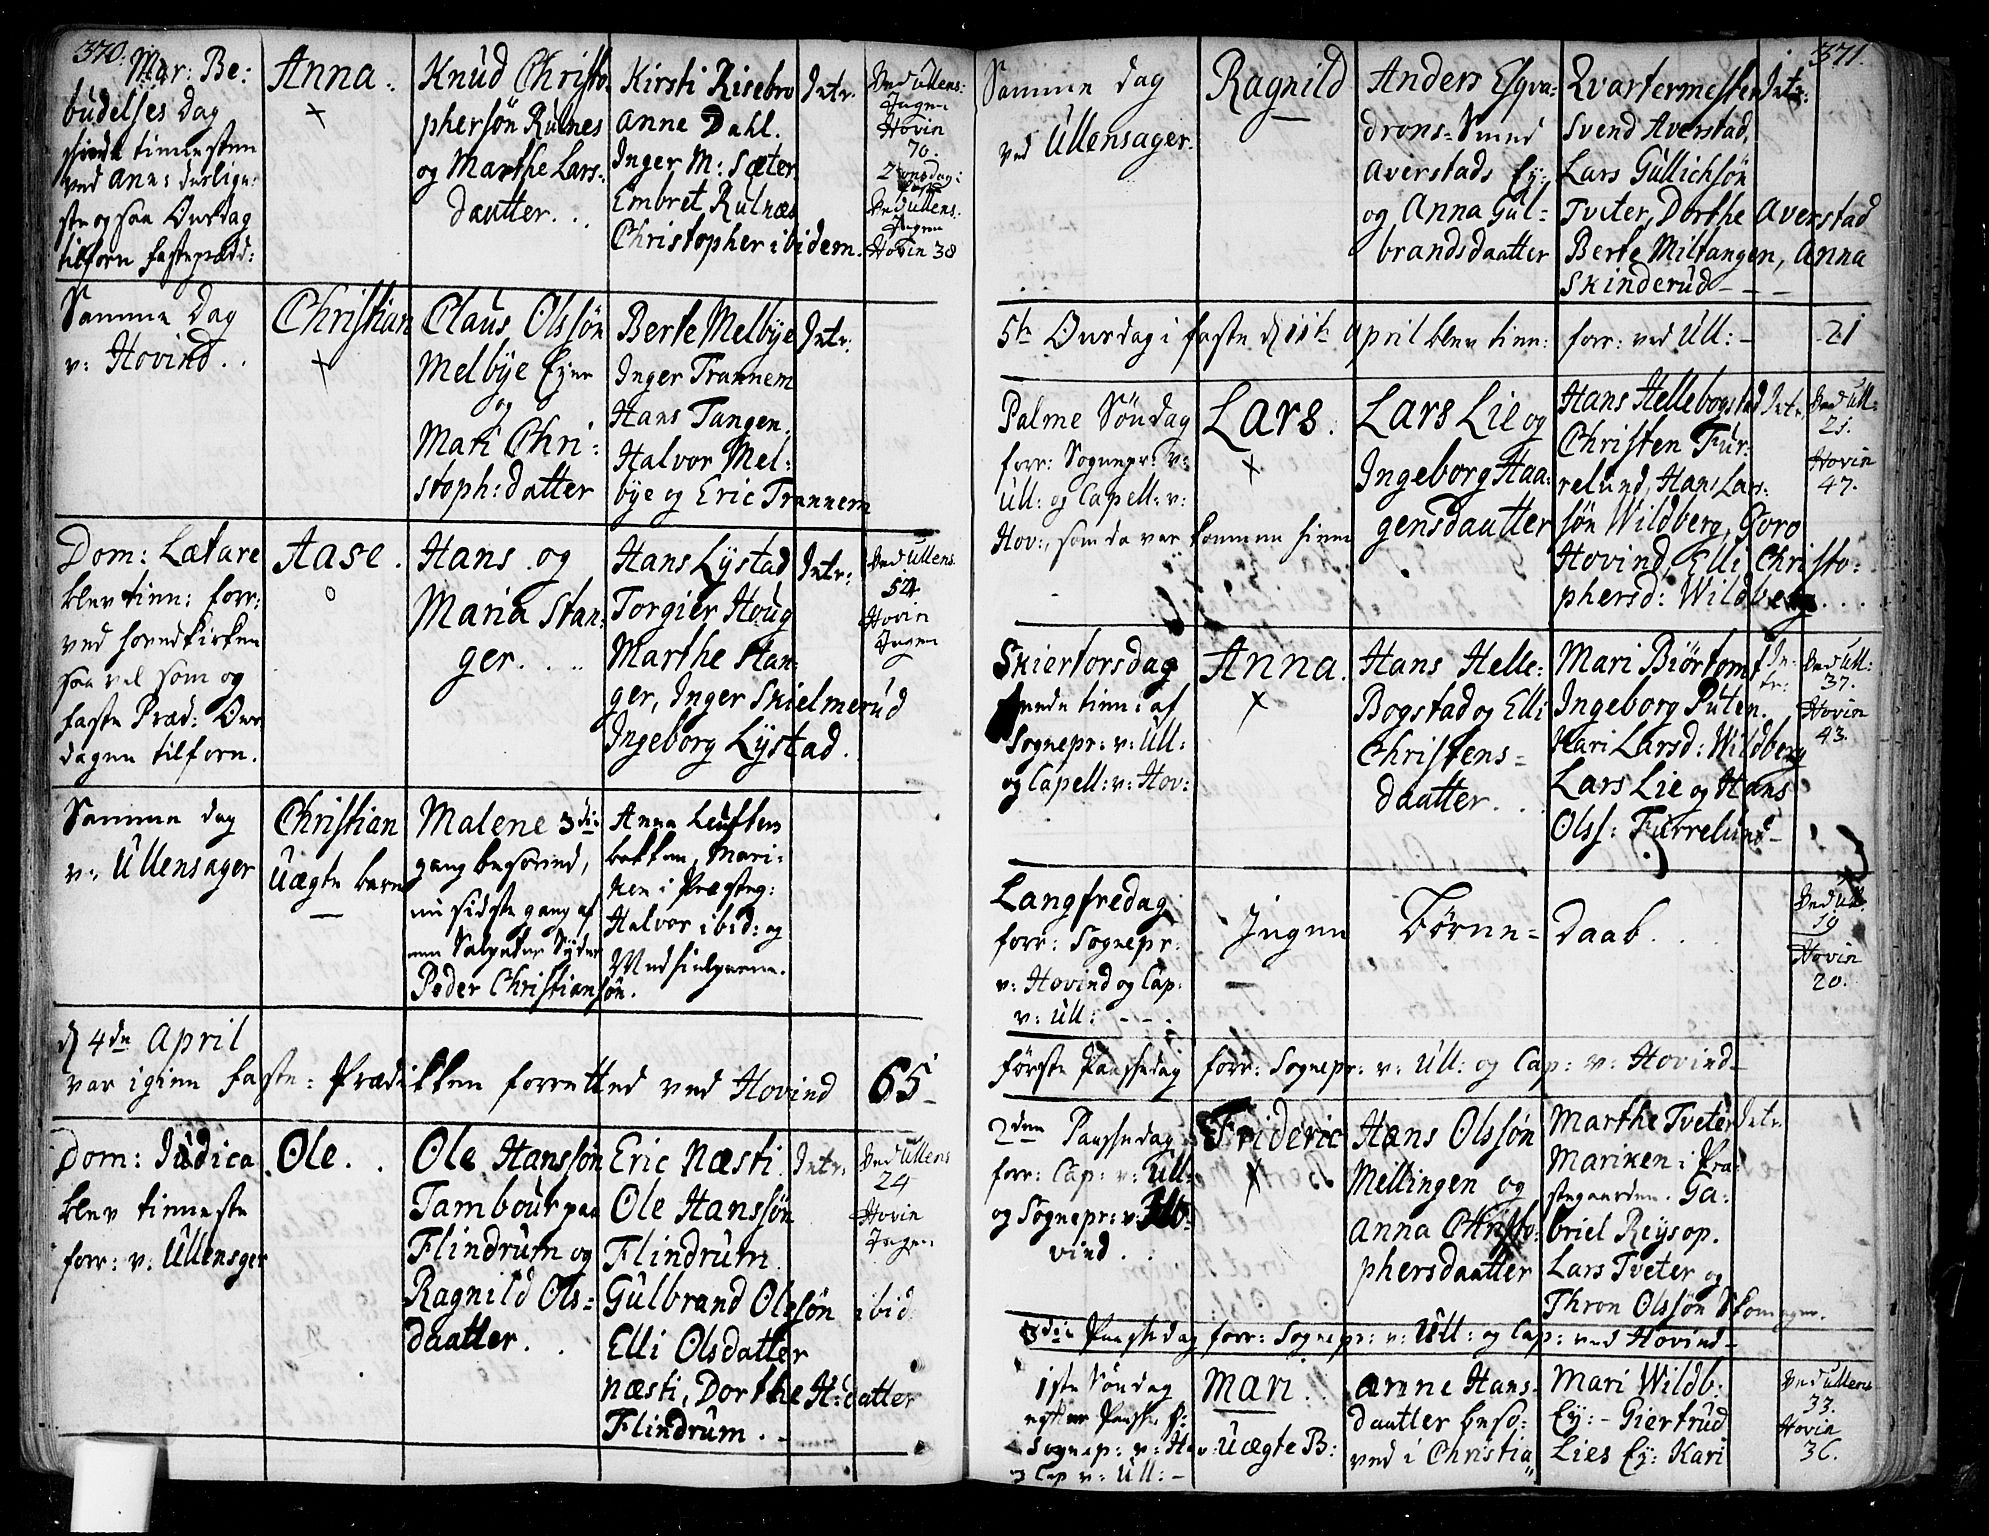 370.
Mar: Be:
budelses Dag
tinnesten
ved Ann:
ste og saa Onsdag
tilforn fasteprædd:
Anna.
+
Knud Christo
phersøn Rulnes
og Marthe Lars:
daatter. .
Kirsti Risebro
Anne Dahl.
Inger M: Sæter
Embret Rulnæs
Christopher ibidem.
Intr.
Ved Ullens:
Ingen
Hovin
70.
2 onsdag:
faste
Ved Ullens.
Ingen
Hovin 38
Samme Dag
v: Hovind. .
Christian
+
Claus Olssøn
Melbye Eyer
og
Mari Chri:
stoph: datter
Berte Melbye
Inger Trannem
Hans Tangen.
Halvor Mel:
bye og Eric Trannem
Intr:
Dom: Lætare
blev tinn: forr:
ved hovedkirken
saa vel som og
faste Præd: Ons
dagen tilforn.
Aase.
o
Hans og
Maria Stan:
ger. . ..
Hans Lystad
Torgier Houg
Marthe Stan:
ger, Inger Skielmerud
Ingeborg Lystad.
Intr:
Ved Ullens.
54
Hovin
Ingen
Samme dag
v: Ullensager
Christian
Uægte barn
—
Malene 3die
gang besovind,
nu sidste gang af
een Salpeter Syder
Peder Christiansøn.
Anna Leufsten
bakken, Mari:
ken i Præsteg:
Halvor ibid: og
Medhielperne.
d 4de April
var igien Faste-Prædikken forretted ved Hovind 65
Dom: Judica
blev tienneste
forr: v: Ullensger
Ole. .
Ole Hanssøn
Tambour paa
Flindrum og
Ragnild Ols=
daatter. .
Eric Næsti.
Ole Hanssøn
Flindrum.
Gulbrand Olessøn ibid
Elli Olsdatter
Næsti, Dorthe H:datter
Flindrum. -
Intr.
Ved Ullens
24
Hovin
Ingen
371.
Samme dag
ved Ullensager.
Ragnild
—
Anders Esqva=
drons=Smed
Averstads Ey:
og Anna Gul=
brandsdaatter
Qvartermester
Svend Averstad,
Lars Gullichsøn
Tveter, Dorthe Averstad
Berte Miltangen, Anna
Skinderud - - -
Intr:
5te Onsdag i faste d 11te April blev tien: forr: ved Ull: - 21
Palme Søndag
forr: Sognepr: v:
Ull: og Capell: v:
Hov:, som da var kommen hiem
Lars.
+
Lars Lie og
Ingeborg Haa:
gensdaatter
Hans Hellebogstad
Christen Fur:
relund, Hans Lars:
søn Wildberg, Goro
Hovind, Elli Christo:
phersd: Wildberg. . .
Intr.
Ved Ull:
21.
Hovin
47.
Skiertorsdag
tien: af
Sognepr: v: Ull:
og Capell: v: Hov:
Anna.
+
Hans Helle:
Bogstad og Elli
Christens=
daatter. .
Mari Biørtomt
Ingeborg Puten.
Kari Larsd: Wildberg
Lars Lie og Hans
Olss: Furrelund-
In:
tr:
Ved Ull:
37.
Hovin
43.
Langfredag
forr: Sognepr:
v: Hovind og Cap:
v: Ull: - - .
Ingen Børne=daab. . .
—
Ved Ull.
19
Hovin
20.
Første Paaskedag forr: Sognepr: v: Ull: og Cap: v: Hovind-
2den Paaskedag
forr: Cap: v: Ull:
og Sognepr: v: Ho:
vind. .
Frideric
+
Hans Olssøn
Mellingen og
Anna Christo:
phersdaatter
Marthe Tveter
Mariken i Præ:
stegaarden. Ga:
briel Reysop.
Lars Tveter og
Thron Olssøn Skomager.
Intr.
3die Paaskedag forr: Sognepr: v: Ull: og Cap: ved Hovind-
1ste Søndag
efter Paaske f:
Sognep: v: Hov:
og Cap v: Ull: -
Mari. .
Uægte B:
Anne Hans-
daatter beso:
ved i Christia"
Mari Wildb:
Ey: - Giertrud
Lies Ey: Kari
Ved Ullens
33.
Hovin
36.